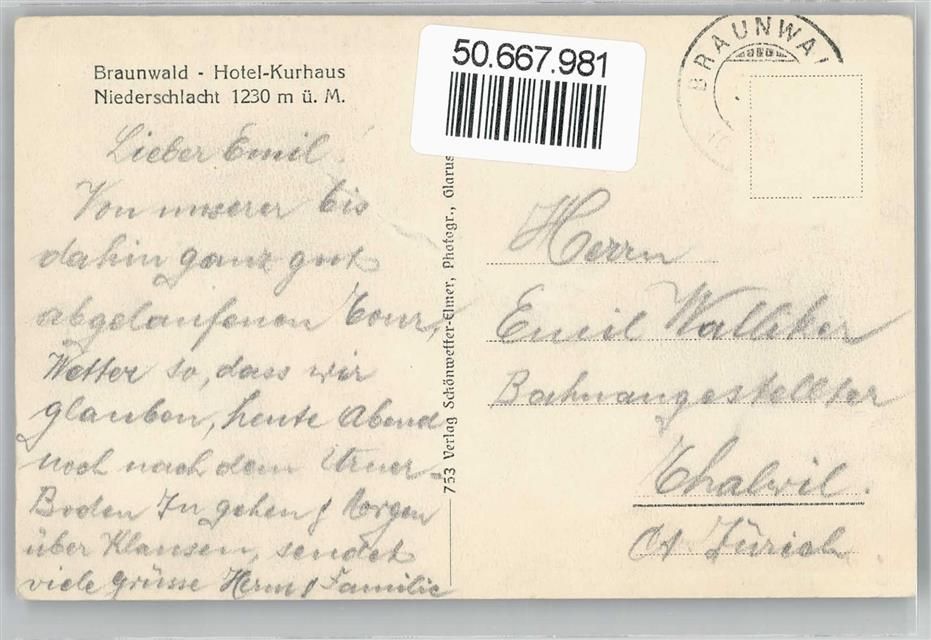 Braunwald - Hotel-Kurhaus
Niederschlacht 1230 m ü. M.
50.667.981
BRAUNWAL
Lieber Emil!
Von unserer bis
dahin ganz gut
abgelaufenen Tour,
Wetter so, dass wir
glauben, heute Abend
noch nach dem Urner-
Boden zu gehen / Morgen
über Klausen, sendet
viele Grüsse Herm / Familie
753 Verlag Schönwetter-Elmer, Photogr., Glarus
Herrn
Emil Walliker
Bahnangestellter
Thalwil.
Ct Zürich